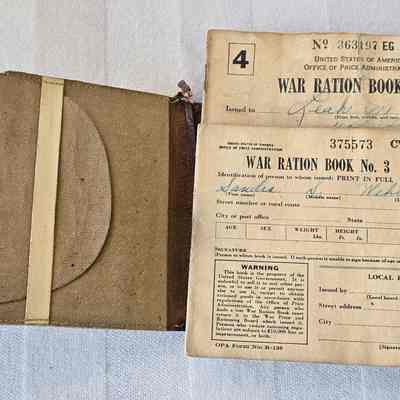 4
No 363197 EG
UNITED STATES OF AMERICA
OFFICE OF PRICE ADMINISTRA
WAR RATION BOOK
Issued to
UNITED STATES OF AMERICA
OFFICE OF PRICE ADMINISTRATION
375573
WAR RATION BOOK No. 3
Identification of person to whom issued: PRINT IN FULL
Sandra S.
(First name) (Middle name)
Street number or rural route
City or post office State
AGE SEX WEIGHT HEIGHT
Lbs. Ft. In.
SIGNATURE
(Person to whom book is issued. If such person is unable to sign because of age or
WARNING
This book is the property of the
United States Government. It is
unlawful to sell it to any other per-
son, or to use it or permit anyone
else to use it, except to obtain
rationed goods in accordance with
regulations of the Office of Price
Administration. Any person who
finds a lost War Ration Book must
return it to the War Price and
Rationing Board which issued it.
Persons who violate rationing regu-
lations are subject to $10,000 fine
or imprisonment, or both.
LOCAL
Issued by
(Local board
Street address
City
(Signature
OPA Form No. R-130